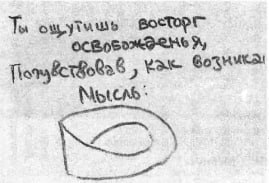 Ты ощутишь восторг
освобожденья,
Почувствовав, как возника
Мысль: